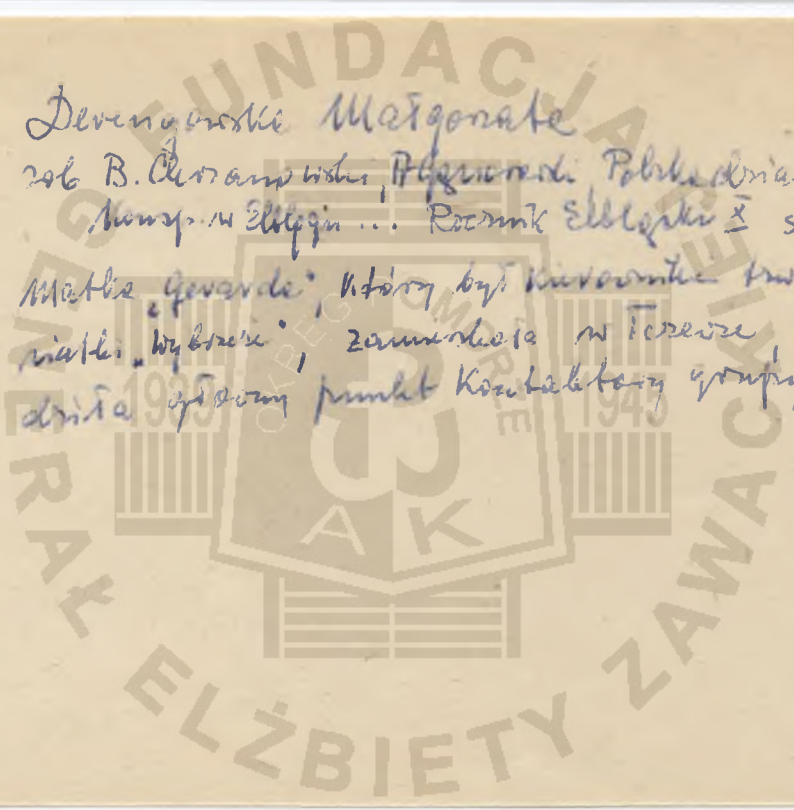 Derengowska Małgorzata
zob B. Chrzanowski, Polska dzia
konsp. w Elblągu ... Rocznik Elbląski X s
Matka „Gerarda", który był kierownikiem
siatki „Wybrzeże", zamieszkała w Tczewie,
dziła główny punkt kontaktowy grupy
FUNDACJA
GENERAŁ ELŻBIETY ZAWACKIEJ
OKRĘG POMORZE
1939 1945
AK